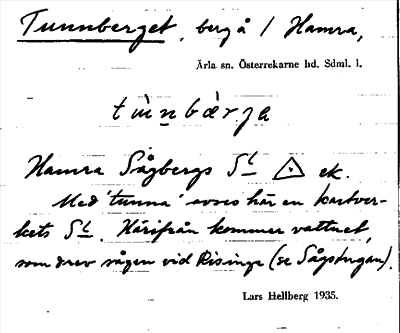 Tunnberget, berg å / Hamra,
Ärla sn. Österrekarne hd. Sdml. l.
Hamra Sågbergs S ek.
Med 'tunna' avses här en kartver-
kets S. Härifrån kommer vattnet,
som drev sågen vid Risinge (se Sågstugan).
Lars Hellberg 1935.